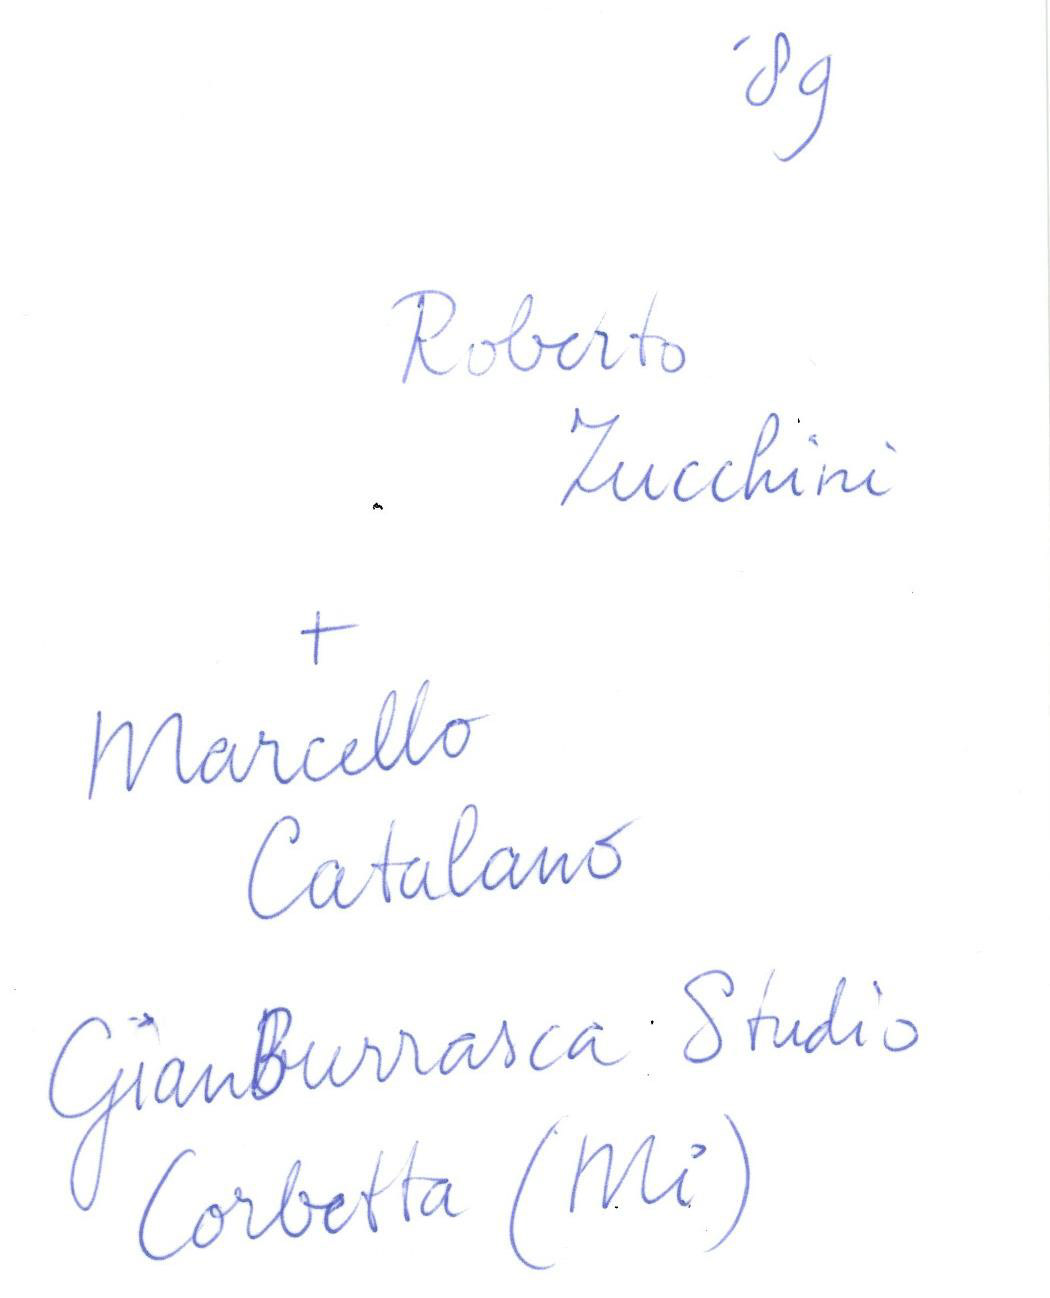 '89
Roberto
Zucchini
+
Marcello
Catalano
GianBurrasca Studio
Corbetta (Mi)